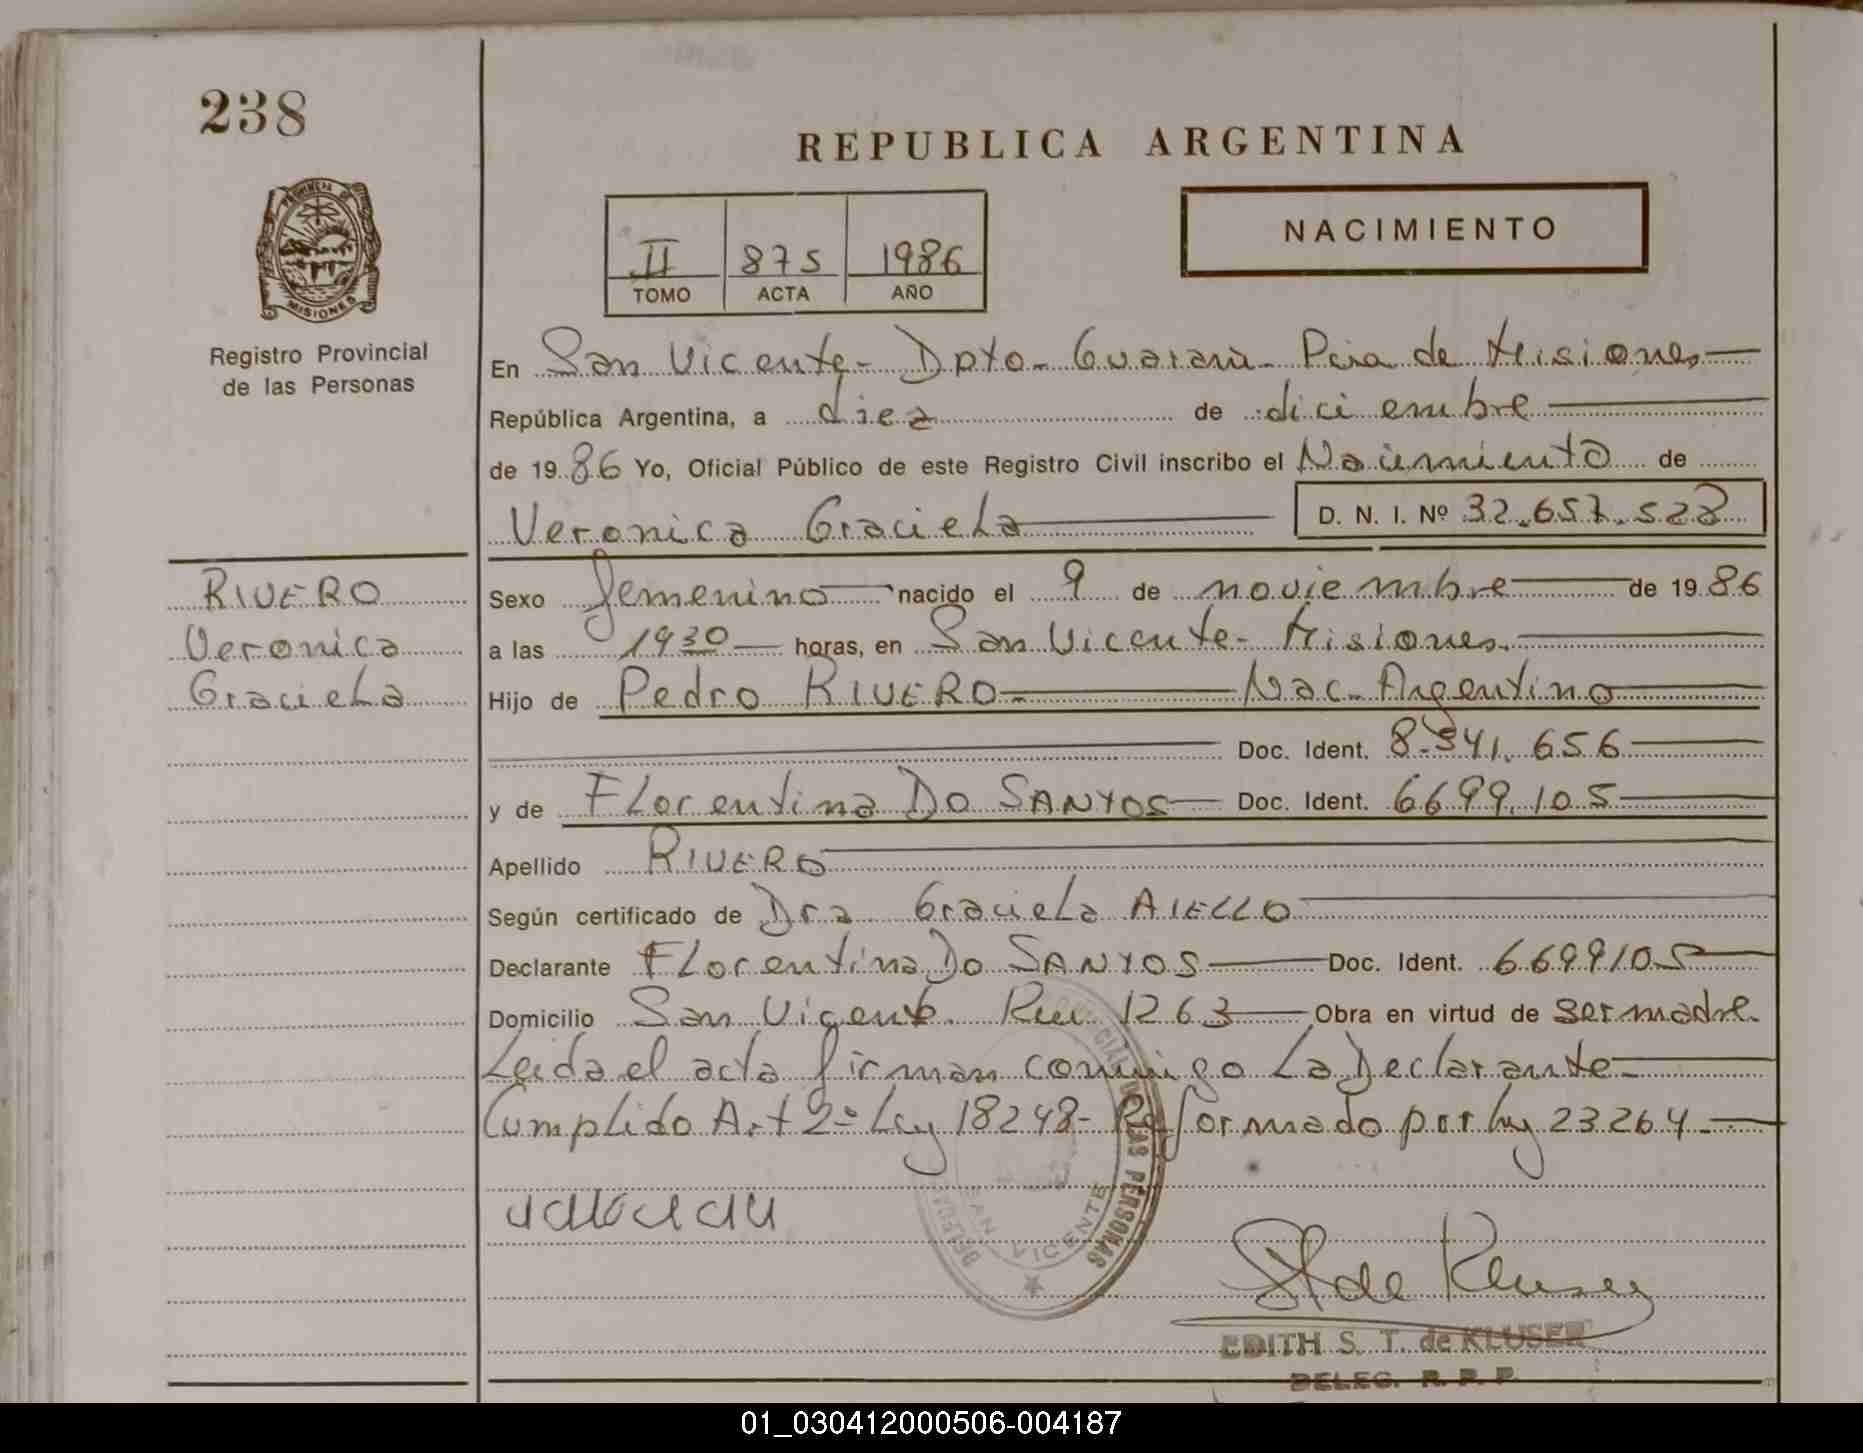 238
REPUBLICA ARGENTINA
PROVINCIA DE
MISIONES
II 875 1986
TOMO ACTA AÑO
NACIMIENTO
Registro Provincial
de las Personas
En San Vicente - Dpto - Guarani - Pcia de Misiones
República Argentina, a diez de diciembre
de 1986 Yo, Oficial Público de este Registro Civil inscribo el Nacimiento de
Veronica Graciela D. N. I. Nº 32.657.528
RIVERO
Veronica
Graciela
Sexo femenino nacido el 9 de noviembre de 1986
a las 19 30 horas, en San Vicente - Misiones.
Hijo de Pedro RIVERO - Nac - Argentino
Doc. Ident. 8.341.656
y de Florentina Do SANTOS Doc. Ident. 6699.105
Apellido RIVERO
Según certificado de Dra Graciela AIELLO
Declarante Florentina Do SANTOS Doc. Ident. 6699105
Domicilio San Vicente. Km 1263 Obra en virtud de ser madre.
Leida el acta firman conmigo La Declarante
Cumplido Art 2º Ley 18248 - Reformado por ley 23264
DELEGA
LAS PERSONAS
SAN VICENTE
de Kluser
EDITH S. T. de KLUSER
DELEG. R. P. P
01_030412000506-004187